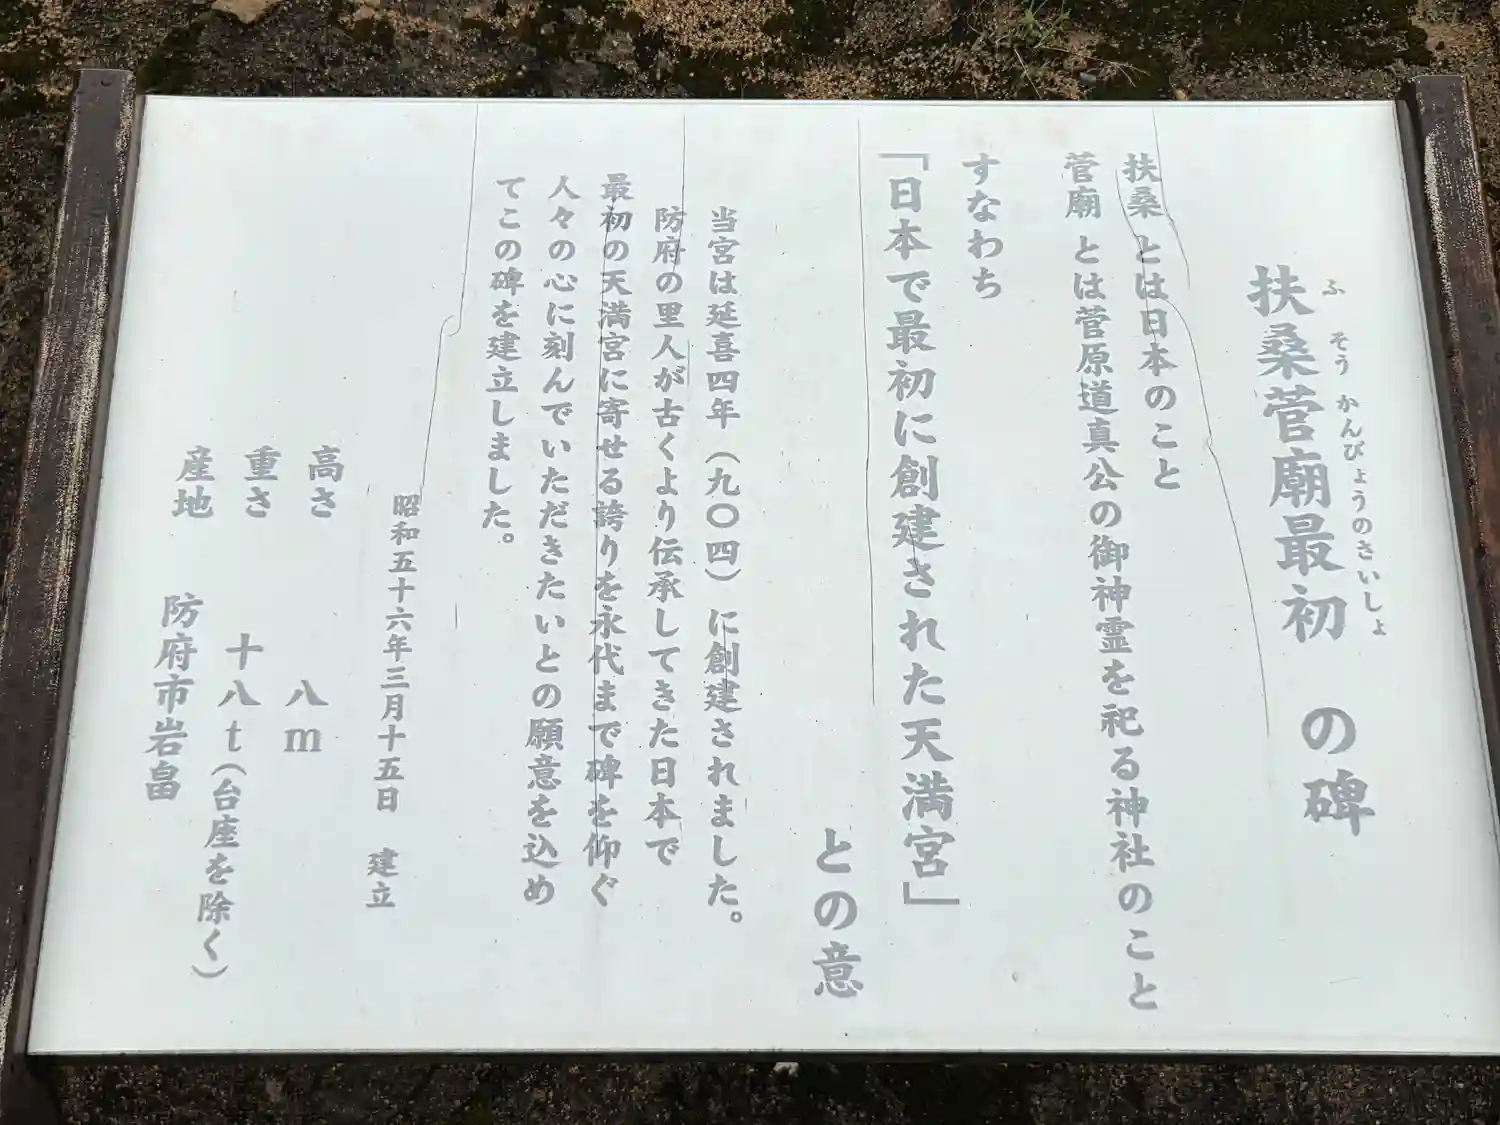 扶桑菅廟最初 の碑
ふ そう かんびょうのさいしょ
扶桑 とは日本のこと
菅廟 とは菅原道真公の御神霊を祀る神社のこと
すなわち
「日本で最初に創建された天満宮」
との意
当宮は延喜四年（九〇四）に創建されました。
防府の里人が古くより伝承してきた日本で
最初の天満宮に寄せる誇りを永代まで碑を仰ぐ
人々の心に刻んでいただきたいとの願意を込め
てこの碑を建立しました。
昭和五十六年三月十五日 建立
高さ 八m
重さ 十八t（台座を除く）
産地 防府市岩畠